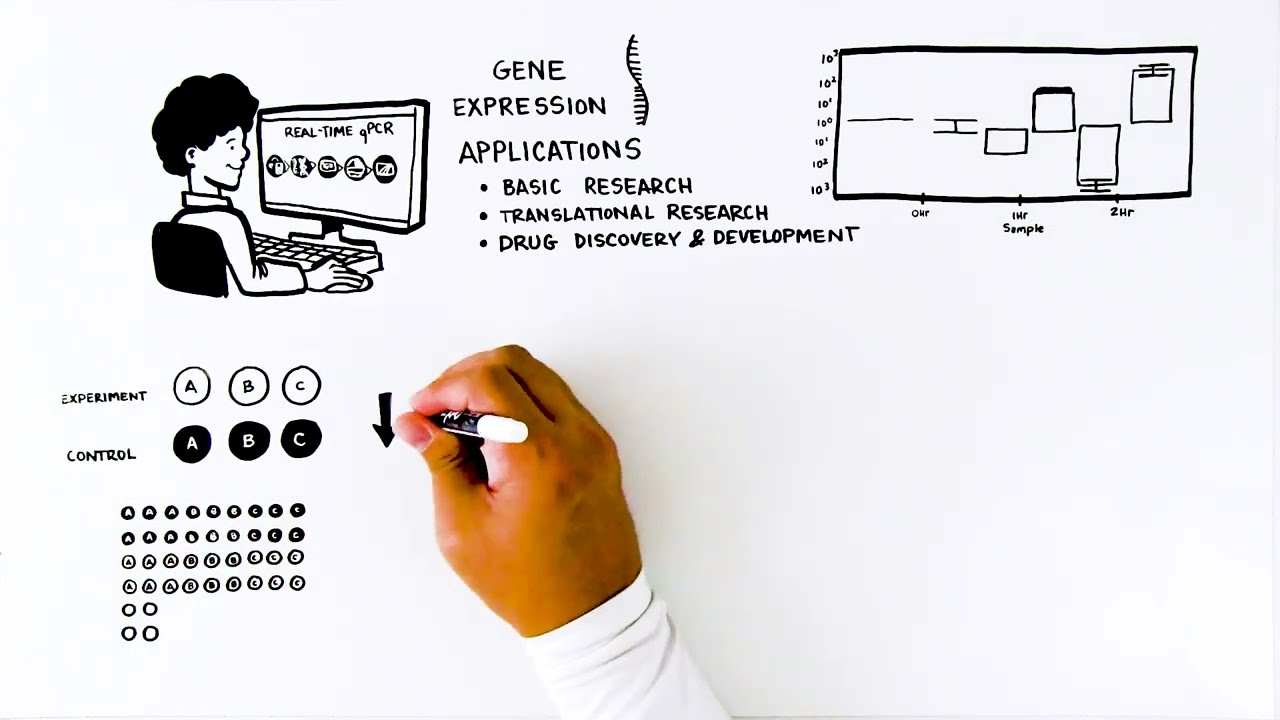 REAL-TIME qPCR
GENE
EXPRESSION
APPLICATIONS
• BASIC RESEARCH
• TRANSLATIONAL RESEARCH
• DRUG DISCOVERY & DEVELOPMENT
10³
10²
10¹
10⁰
10¹
10²
10³
0Hr 1Hr 2Hr
Sample
EXPERIMENT A B C
CONTROL A B C
A A A B B B C C C
A A A B B B C C C
A A A B B B C C C
A A A B B B C C C